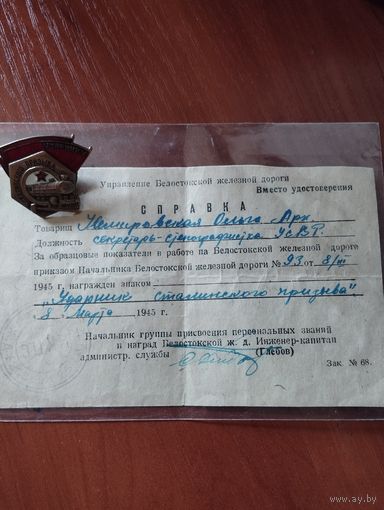 Управление Белостокской железной дороги
Вместо удостоверения
СПРАВКА
Товарищ Немировская Ольга Арк.
Должность секретарь-стенографистка УСВР
За образцовые показатели в работе на Белостокской железной дороге
приказом Начальника Белостокской железной дороги № 93 от 8/III
1945 г. награжден знаком:
„Ударник сталинского призыва"
8 Марта 1945 г.
Начальник группы присвоения персональных званий
и наград Белостокской ж. д. Инженер-капитан
администр. службы (Глебов)
Зак. № 68.
www.ay.by